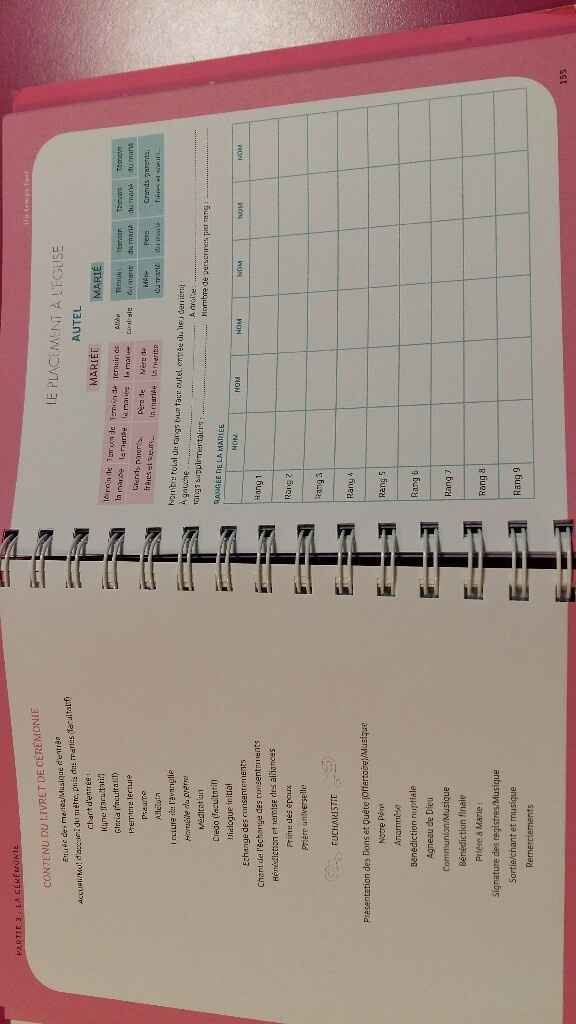 PARTIE 3 : LA CÉRÉMONIE
CONTENU DU LIVRET DE CÉRÉMONIE
Entrée des mariés/Musique d'entrée
Accueil/Mot d'accueil du prêtre, puis des mariés (facultatif)
Chant d'entrée :
Kyrie (facultatif)
Gloria (facultatif)
Première lecture
Psaume
Alléluia
Lecture de l'évangile
Homélie du prêtre
Méditation
Credo (facultatif)
Dialogue initial
Échange des consentements
Chant de l'échange des consentements
Bénédiction et remise des alliances
Prière des époux
Prière universelle
EUCHARISTIE
Présentation des Dons et Quête (Offertoire)/Musique
Notre Père
Anamnèse
Bénédiction nuptiale
Agneau de Dieu
Communion/Musique
Bénédiction finale
Prière à Marie :
Signature des registres/Musique
Sortie/chant et musique
Remerciements
LE PLACEMENT À L'ÉGLISE
AUTEL
MARIÉE MARIÉ
Témoin de la mariée Témoin de la mariée Témoin de la mariée Témoin de la mariée Allée centrale Témoin du marié Témoin du marié Témoin du marié Témoin du marié
Grands-parents, frères et sœurs... Père de la mariée Mère de la mariée Mère du marié Père du marié Grands-parents, frères et sœurs...
Nombre total de rangs (vue face autel, entrée du lieu derrière) :
À gauche À droite
Rangs supplémentaires : Nombre de personnes par rang :
RANGÉE DE LA MARIÉE
NOM NOM NOM NOM NOM NOM
Rang 1
Rang 2
Rang 3
Rang 4
Rang 5
Rang 6
Rang 7
Rang 8
Rang 9
155